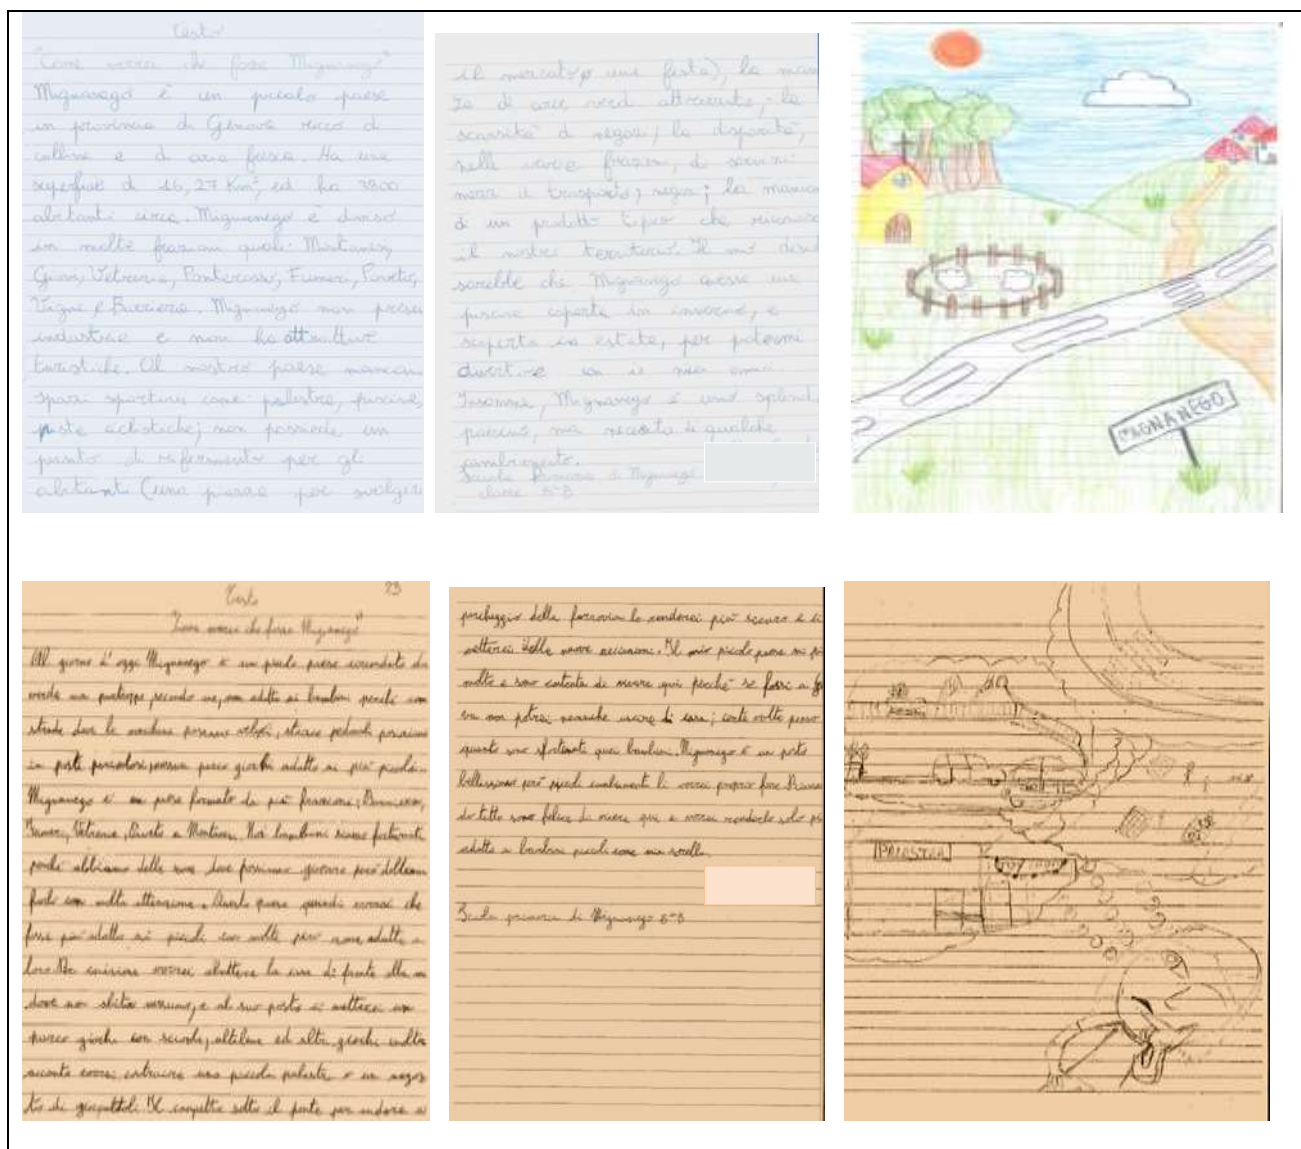 Testo
"Come vorrei che fosse Mignanego"
Mignanego è un piccolo paese
in provincia di Genova ricco di
colline e di aria fresca. Ha una
superficie di 16,27 Km², ed ha 3800
abitanti circa. Mignanego è diviso
in molte frazioni quali: Montanesi,
Giovi, Vetreria, Ponterosso, Fumeri, Paveto,
Vigne e Barriera. Mignanego non presen
industrie e non ha attrattive
turistiche. Al nostro paese mancan
spazi sportivi come palestre, piscine,
piste ciclistiche; non possiede un
punto di riferimento per gli
abitanti (una piazza per svolgere
il mercato o una festa), la man
za di aree verdi attrezzate, la
scarsità di negozi, la disparità,
nelle varie frazioni, di servizi:
mezzi di trasporto, negozi; la mancan
di un prodotto tipico che riconosc
il nostro territorio. Il mio desid
sarebbe che Mignanego avesse una
piscina coperta in inverno, e
scoperta in estate, per potermi
divertire con i miei amici.
Insomma, Mignanego è uno splendi
paesino, ma necessita di qualche
cambiamento.
Scuola primaria di Mignanego
classe 5ªB
MIGNANEGO
Testo 23
"Come vorrei che fosse Mignanego"
Al giorno d'oggi Mignanego è un piccolo paese circondato da
verde ma purtroppo secondo me, non adatto ai bambini perché con
strade dove le macchine passano veloci, strisce pedonali posizionate
in posti pericolosi, nessun parco giochi adatto ai più piccoli.
Mignanego è un paese formato da più frazioni; Barriera,
Fumeri, Vetreria, Paveto e Montanesi. Noi bambini siamo fortunati
perché abbiamo delle zone dove possiamo giocare però dobbiamo
farlo con molta attenzione. Questo paese quindi vorrei che
fosse più adatto ai piccoli con molte più zone adatte a
loro. Per cominciare vorrei abbattere la casa di fronte alla
dove non abita nessuno, e al suo posto ci metterei un
parco giochi con scivoli, altalene ed altri giochi
accanto vorrei costruire una piccola palestra o un negozi
to di giocattoli. Il sotto il ponte per andare a
parcheggio della ferrovia lo renderei più sicuro e ci
metterei delle nuove recinzioni. Il mio piccolo paese mi pi
molto e sono contenta di vivere qui perché se fossi a Ge
va non potrei neanche uscire di casa; certe volte penso
quanto sono sfortunati quei bambini. Mignanego è un posto
bellissimo però piccoli cambiamenti li vorrei proprio fare.
di tutto sono felice di vivere qui e vorrei renderlo solo pi
adatto a bambini piccoli come mia sorella.
Scuola primaria di Mignanego 5ªB
PALESTRA